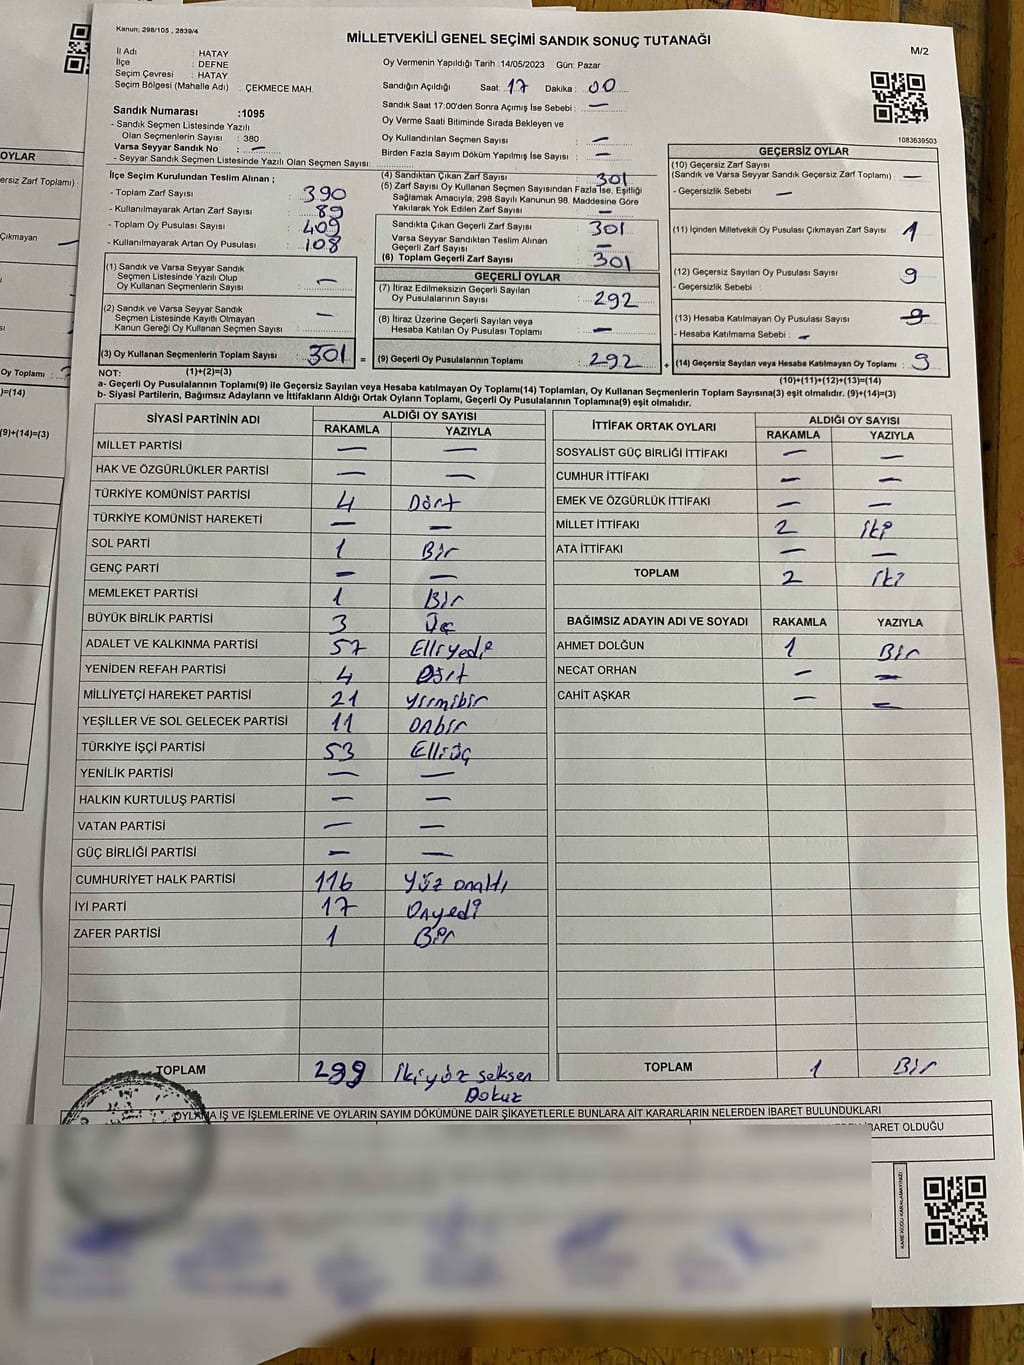 Kanun: 298/105 , 2839/4
MİLLETVEKİLİ GENEL SEÇİMİ SANDIK SONUÇ TUTANAĞI
M/2
İl Adı : HATAY
İlçe : DEFNE
Seçim Çevresi : HATAY
Seçim Bölgesi (Mahalle Adı) : ÇEKMECE MAH.
Oy Vermenin Yapıldığı Tarih : 14/05/2023 Gün: Pazar
Sandığın Açıldığı Saat: 17 Dakika : 00
Sandık Saat 17:00'den Sonra Açımış İse Sebebi : —
Oy Verme Saati Bitiminde Sırada Bekleyen ve
Oy Kullandırılan Seçmen Sayısı : —
Birden Fazla Sayım Döküm Yapılmış İse Sayısı : —
1083639503
Sandık Numarası :1095
- Sandık Seçmen Listesinde Yazılı
Olan Seçmenlerin Sayısı : 380
Varsa Seyyar Sandık No : —
- Seyyar Sandık Seçmen Listesinde Yazılı Olan Seçmen Sayısı:
İlçe Seçim Kurulundan Teslim Alınan ;
- Toplam Zarf Sayısı : 390
- Kullanılmayarak Artan Zarf Sayısı : 89
- Toplam Oy Pusulası Sayısı : 409
- Kullanılmayarak Artan Oy Pusulası : 108
(1) Sandık ve Varsa Seyyar Sandık
Seçmen Listesinde Yazılı Olup
Oy Kullanan Seçmenlerin Sayısı : —
(2) Sandık ve Varsa Seyyar Sandık
Seçmen Listesinde Kayıtlı Olmayan
Kanun Gereği Oy Kullanan Seçmen Sayısı : —
(3) Oy Kullanan Seçmenlerin Toplam Sayısı : 301 =
(4) Sandıktan Çıkan Zarf Sayısı : 301
(5) Zarf Sayısı Oy Kullanan Seçmen Sayısından Fazla İse, Eşitliği
Sağlamak Amacıyla; 298 Sayılı Kanunun 98. Maddesine Göre
Yakılarak Yok Edilen Zarf Sayısı : —
Sandıkta Çıkan Geçerli Zarf Sayısı : 301
Varsa Seyyar Sandıktan Teslim Alınan
Geçerli Zarf Sayısı : —
(6) Toplam Geçerli Zarf Sayısı : 301
GEÇERLİ OYLAR
(7) İtiraz Edilmeksizin Geçerli Sayılan
Oy Pusulalarının Sayısı : 292
(8) İtiraz Üzerine Geçerli Sayılan veya
Hesaba Katılan Oy Pusulası Toplamı : —
(9) Geçerli Oy Pusulalarının Toplamı : 292 +
GEÇERSİZ OYLAR
(10) Geçersiz Zarf Sayısı
(Sandık ve Varsa Seyyar Sandık Geçersiz Zarf Toplamı) : —
- Geçersizlik Sebebi : —
(11) İçinden Milletvekili Oy Pusulası Çıkmayan Zarf Sayısı : 1
(12) Geçersiz Sayılan Oy Pusulası Sayısı : 9
- Geçersizlik Sebebi :
(13) Hesaba Katılmayan Oy Pusulası Sayısı : 9
- Hesaba Katılmama Sebebi : —
(14) Geçersiz Sayılan veya Hesaba Katılmayan Oy Toplamı : 9
NOT: (1)+(2)=(3) (10)+(11)+(12)+(13)=(14)
a- Geçerli Oy Pusulalarının Toplamı(9) ile Geçersiz Sayılan veya Hesaba katılmayan Oy Toplamı(14) Toplamları, Oy Kullanan Seçmenlerin Toplam Sayısına(3) eşit olmalıdır. (9)+(14)=(3)
b- Siyasi Partilerin, Bağımsız Adayların ve İttifakların Aldığı Ortak Oyların Toplamı, Geçerli Oy Pusulalarının Toplamına(9) eşit olmalıdır.
SİYASİ PARTİNİN ADI ALDIĞI OY SAYISI
RAKAMLA YAZIYLA
MİLLET PARTİSİ — —
HAK VE ÖZGÜRLÜKLER PARTİSİ — —
TÜRKİYE KOMÜNİST PARTİSİ 4 Dört
TÜRKİYE KOMÜNİST HAREKETİ — —
SOL PARTİ 1 Bir
GENÇ PARTİ — —
MEMLEKET PARTİSİ 1 Bir
BÜYÜK BİRLİK PARTİSİ 3 Üç
ADALET VE KALKINMA PARTİSİ 57 Elliyedi
YENİDEN REFAH PARTİSİ 4 Dört
MİLLİYETÇİ HAREKET PARTİSİ 21 yirmibir
YEŞİLLER VE SOL GELECEK PARTİSİ 11 onbir
TÜRKİYE İŞÇİ PARTİSİ 53 Elliüç
YENİLİK PARTİSİ — —
HALKIN KURTULUŞ PARTİSİ — —
VATAN PARTİSİ — —
GÜÇ BİRLİĞİ PARTİSİ — —
CUMHURİYET HALK PARTİSİ 116 Yüz onaltı
İYİ PARTİ 17 Onyedi
ZAFER PARTİSİ 1 Bir
TOPLAM 299 İkiyüz seksen
Dokuz
İTTİFAK ORTAK OYLARI ALDIĞI OY SAYISI
RAKAMLA YAZIYLA
SOSYALİST GÜÇ BİRLİĞİ İTTİFAKI — —
CUMHUR İTTİFAKI — —
EMEK VE ÖZGÜRLÜK İTTİFAKI — —
MİLLET İTTİFAKI 2 iki
ATA İTTİFAKI — —
TOPLAM 2 iki
BAĞIMSIZ ADAYIN ADI VE SOYADI RAKAMLA YAZIYLA
AHMET DOLĞUN 1 Bir
NECAT ORHAN — —
CAHİT AŞKAR — —
TOPLAM 1 Bir
OYLAMA İŞ VE İŞLEMLERİNE VE OYLARIN SAYIM DÖKÜMÜNE DAİR ŞİKAYETLERLE BUNLARA AİT KARARLARIN NELERDEN İBARET BULUNDUKLARI
İBARET OLDUĞU
KARE KODU KARALAMAYINIZ!
OYLAR
ersiz Zarf Toplamı) :
Çıkmayan —
Oy Toplamı :
)=(14)
(9)+(14)=(3)